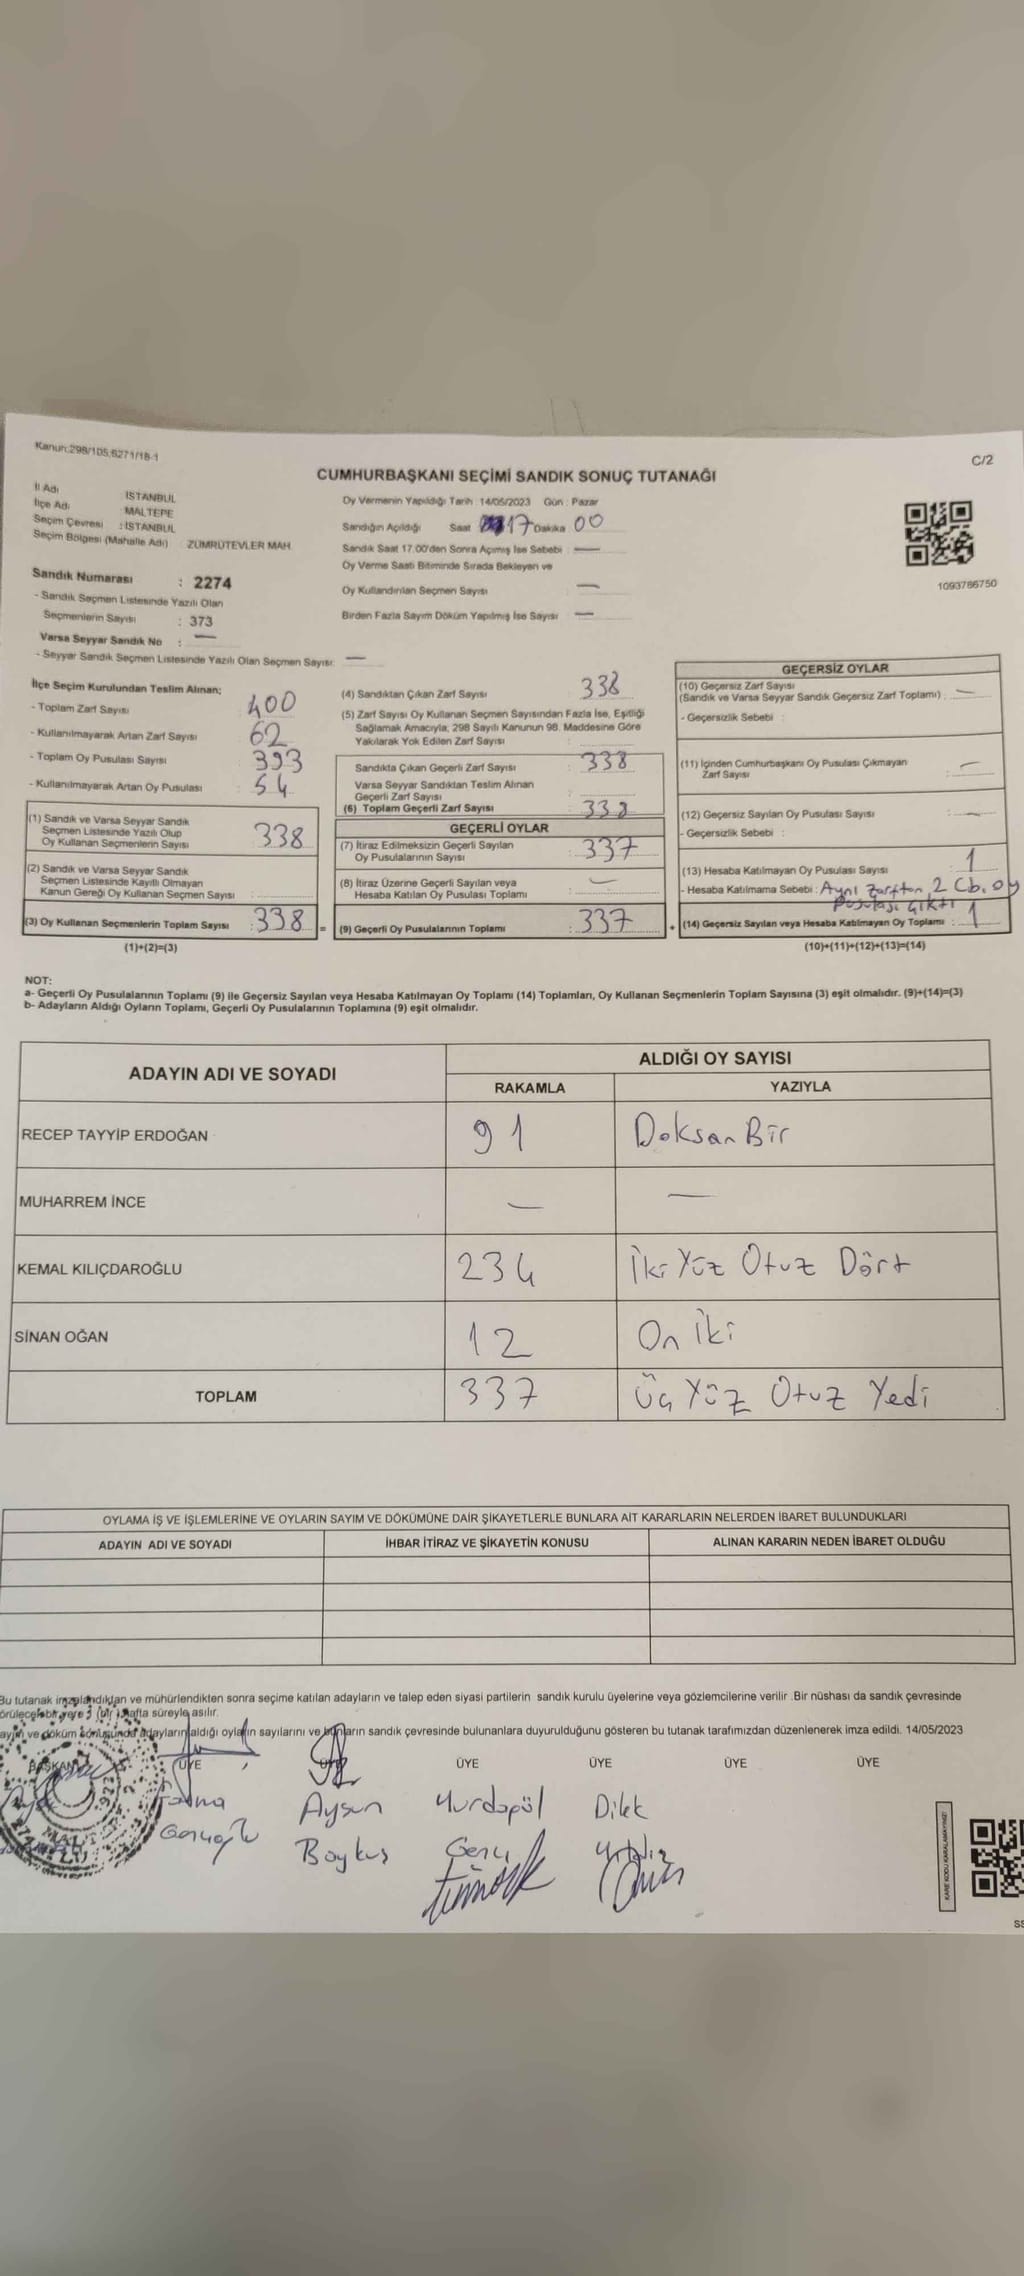 Kanun:298/105;6271/18-1
C/2
CUMHURBAŞKANI SEÇİMİ SANDIK SONUÇ TUTANAĞI
İl Adı : İSTANBUL
İlçe Adı : MALTEPE
Seçim Çevresi : İSTANBUL
Seçim Bölgesi (Mahalle Adı) : ZÜMRÜTEVLER MAH.
Sandık Numarası : 2274
- Sandık Seçmen Listesinde Yazılı Olan
Seçmenlerin Sayısı : 373
Varsa Seyyar Sandık No : —
- Seyyar Sandık Seçmen Listesinde Yazılı Olan Seçmen Sayısı: —
Oy Vermenin Yapıldığı Tarih :14/05/2023 Gün : Pazar
Sandığın Açıldığı Saat 17 Dakika 00
Sandık Saat 17.00'den Sonra Açımış İse Sebebi : —
Oy Verme Saati Bitiminde Sırada Bekleyen ve
Oy Kullandırılan Seçmen Sayısı : —
Birden Fazla Sayım Döküm Yapılmış İse Sayısı : —
1093786750
İlçe Seçim Kurulundan Teslim Alınan;
- Toplam Zarf Sayısı : 400
- Kullanılmayarak Artan Zarf Sayısı : 62
- Toplam Oy Pusulası Sayısı : 393
- Kullanılmayarak Artan Oy Pusulası : 54
(1) Sandık ve Varsa Seyyar Sandık
Seçmen Listesinde Yazılı Olup
Oy Kullanan Seçmenlerin Sayısı : 338
(2) Sandık ve Varsa Seyyar Sandık
Seçmen Listesinde Kayıtlı Olmayan
Kanun Gereği Oy Kullanan Seçmen Sayısı :
(3) Oy Kullanan Seçmenlerin Toplam Sayısı : 338 =
(1)+(2)=(3)
(4) Sandıktan Çıkan Zarf Sayısı 338
(5) Zarf Sayısı Oy Kullanan Seçmen Sayısından Fazla İse, Eşitliği
Sağlamak Amacıyla, 298 Sayılı Kanunun 98. Maddesine Göre
Yakılarak Yok Edilen Zarf Sayısı :
Sandıkta Çıkan Geçerli Zarf Sayısı : 338
Varsa Seyyar Sandıktan Teslim Alınan
Geçerli Zarf Sayısı :
(6) Toplam Geçerli Zarf Sayısı : 338
GEÇERLİ OYLAR
(7) İtiraz Edilmeksizin Geçerli Sayılan
Oy Pusulalarının Sayısı : 337
(8) İtiraz Üzerine Geçerli Sayılan veya
Hesaba Katılan Oy Pusulası Toplamı : —
(9) Geçerli Oy Pusulalarının Toplamı : 337 +
GEÇERSİZ OYLAR
(10) Geçersiz Zarf Sayısı
(Sandık ve Varsa Seyyar Sandık Geçersiz Zarf Toplamı) : —
- Geçersizlik Sebebi :
(11) İçinden Cumhurbaşkanı Oy Pusulası Çıkmayan
Zarf Sayısı : —
(12) Geçersiz Sayılan Oy Pusulası Sayısı : —
- Geçersizlik Sebebi :
(13) Hesaba Katılmayan Oy Pusulası Sayısı : 1
- Hesaba Katılmama Sebebi : Aynı zarftan 2 Cb. oy
pusulası çıktı
(14) Geçersiz Sayılan veya Hesaba Katılmayan Oy Toplamı : 1
(10)+(11)+(12)+(13)=(14)
NOT:
a- Geçerli Oy Pusulalarının Toplamı (9) ile Geçersiz Sayılan veya Hesaba Katılmayan Oy Toplamı (14) Toplamları, Oy Kullanan Seçmenlerin Toplam Sayısına (3) eşit olmalıdır. (9)+(14)=(3)
b- Adayların Aldığı Oyların Toplamı, Geçerli Oy Pusulalarının Toplamına (9) eşit olmalıdır.
ADAYIN ADI VE SOYADI
ALDIĞI OY SAYISI
RAKAMLA YAZIYLA
RECEP TAYYİP ERDOĞAN 91 Doksan Bir
MUHARREM İNCE — —
KEMAL KILIÇDAROĞLU 234 İki Yüz Otuz Dört
SİNAN OĞAN 12 On İki
TOPLAM 337 Üç Yüz Otuz Yedi
OYLAMA İŞ VE İŞLEMLERİNE VE OYLARIN SAYIM VE DÖKÜMÜNE DAİR ŞİKAYETLERLE BUNLARA AİT KARARLARIN NELERDEN İBARET BULUNDUKLARI
ADAYIN ADI VE SOYADI İHBAR İTİRAZ VE ŞİKAYETİN KONUSU ALINAN KARARIN NEDEN İBARET OLDUĞU
Bu tutanak imzalandıktan ve mühürlendikten sonra seçime katılan adayların ve talep eden siyasi partilerin sandık kurulu üyelerine veya gözlemcilerine verilir .Bir nüshası da sandık çevresinde
örülecebilir yere 1 (bir) hafta süreyle asılır.
ayım ve döküm sonucunda adayların aldığı oyların sayılarını ve bunların sandık çevresinde bulunanlara duyurulduğunu gösteren bu tutanak tarafımızdan düzenlenerek imza edildi. 14/05/2023
BAŞKAN ÜYE ÜYE ÜYE ÜYE ÜYE ÜYE
Fatma Aysun Yurdagül Dilek
Baykuş Genç
KARE KODU KARALAMAYINIZ!